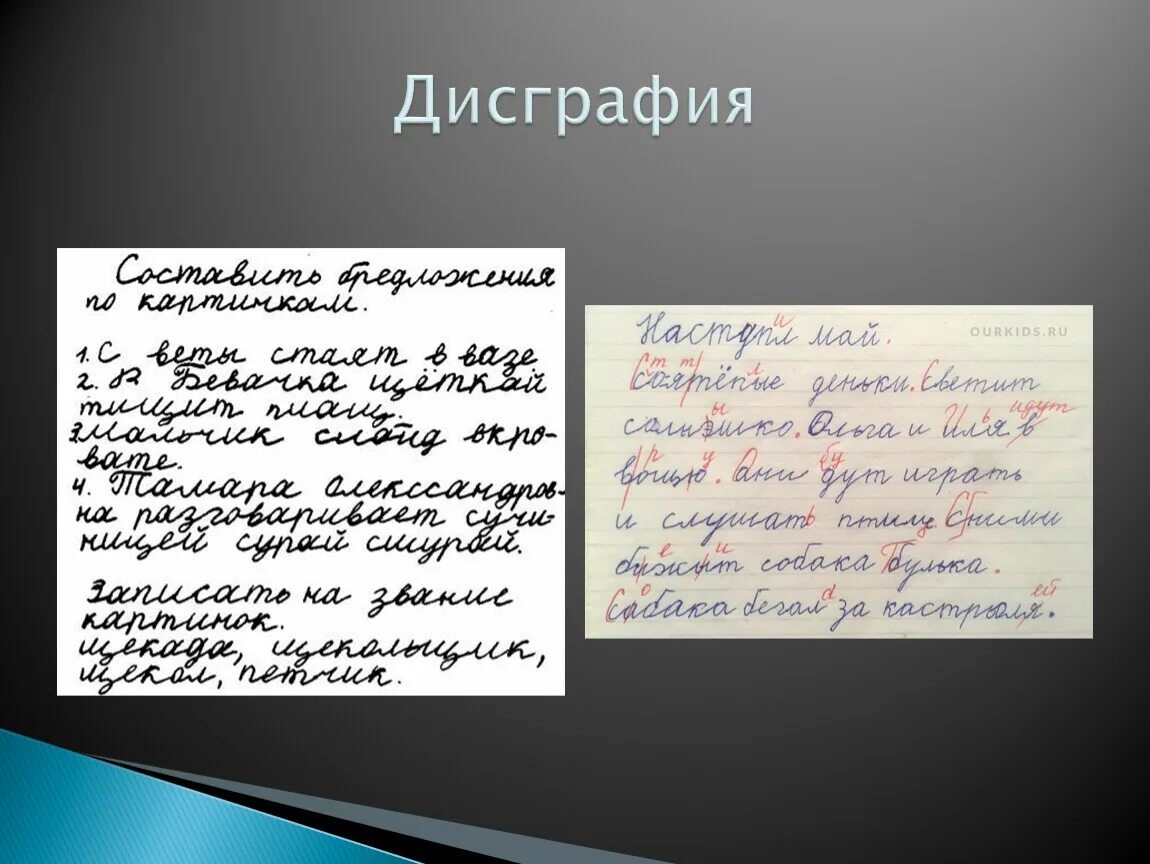 Дисграфия
Составить бредложения
по картинкам.
1. С веты стаят в вазе
2. Бевачка щёткай
тищит плащ.
3. Мальчик слоид окро-
вате.
4. Тамара Олександров-
на разговаривает сучи-
ницей сурай сшурай.
Записать на звание
картинок.
щекада, щекольщик,
щекол, петчик.
OURKIDS.RU
май.
деньки. Светит
Ольга и Иля в
вощю. Они дут играть
и слушат птиц. Сними
бижыт собака булька.
Сабака бегал за кастрюля.